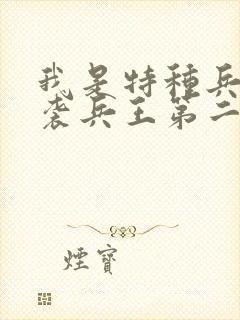 我是特種兵
袭兵王第二
煙寶